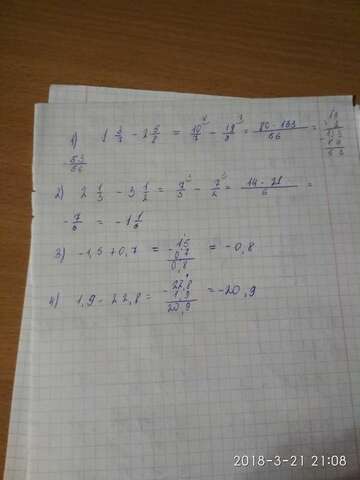 1) 1 3/7 - 2 5/8 = 10/7 - 19/8 = 80 - 133 / 56 =
53/56
2) 2 1/3 - 3 1/2 = 7/3 - 7/2 = 14 - 21 / 6 =
- 7/6 = -1 1/6
3) -1,5 + 0,7 = - 1,5 0,7 0,8 = -0,8
4) 1,9 - 22,8 = - 22,8 1,9 20,9 = -20,9
2018-3-21 21:08